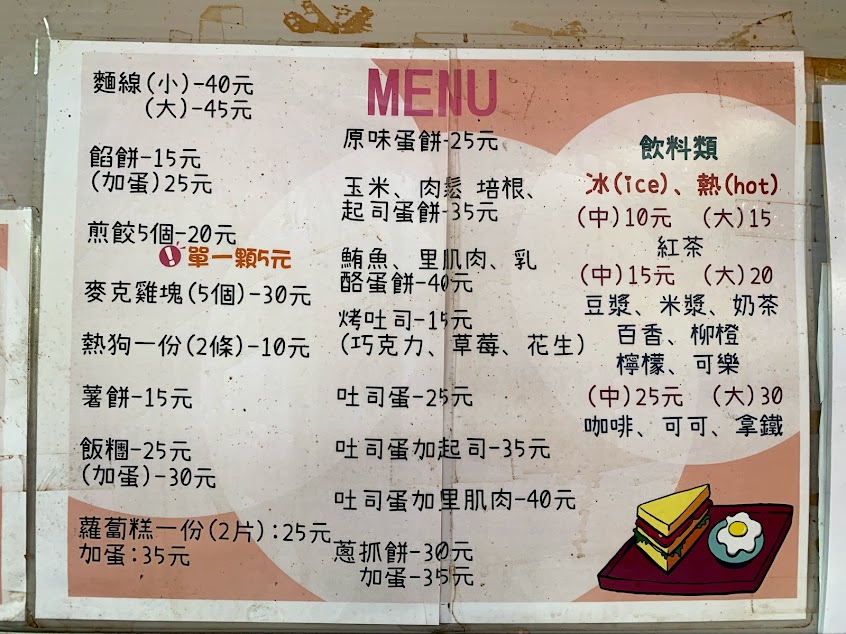 MENU
麵線(小)-40元
(大)-45元
餡餅-15元
(加蛋)25元
煎餃5個-20元
!單一顆5元
麥克雞塊(5個)-30元
熱狗一份(2條)-10元
薯餅-15元
飯糰-25元
(加蛋)-30元
蘿蔔糕一份(2片):25元
加蛋:35元
原味蛋餅-25元
玉米、肉鬆 培根、
起司蛋餅-35元
鮪魚、里肌肉、乳
酪蛋餅-40元
烤吐司-15元
(巧克力、草莓、花生)
吐司蛋-25元
吐司蛋加起司-35元
吐司蛋加里肌肉-40元
蔥抓餅-30元
加蛋-35元
飲料類
冰(ice)、熱(hot)
(中)10元 (大)15
紅茶
(中)15元 (大)20
豆漿、米漿、奶茶
百香、柳橙
檸檬、可樂
(中)25元 (大)30
咖啡、可可、拿鐵